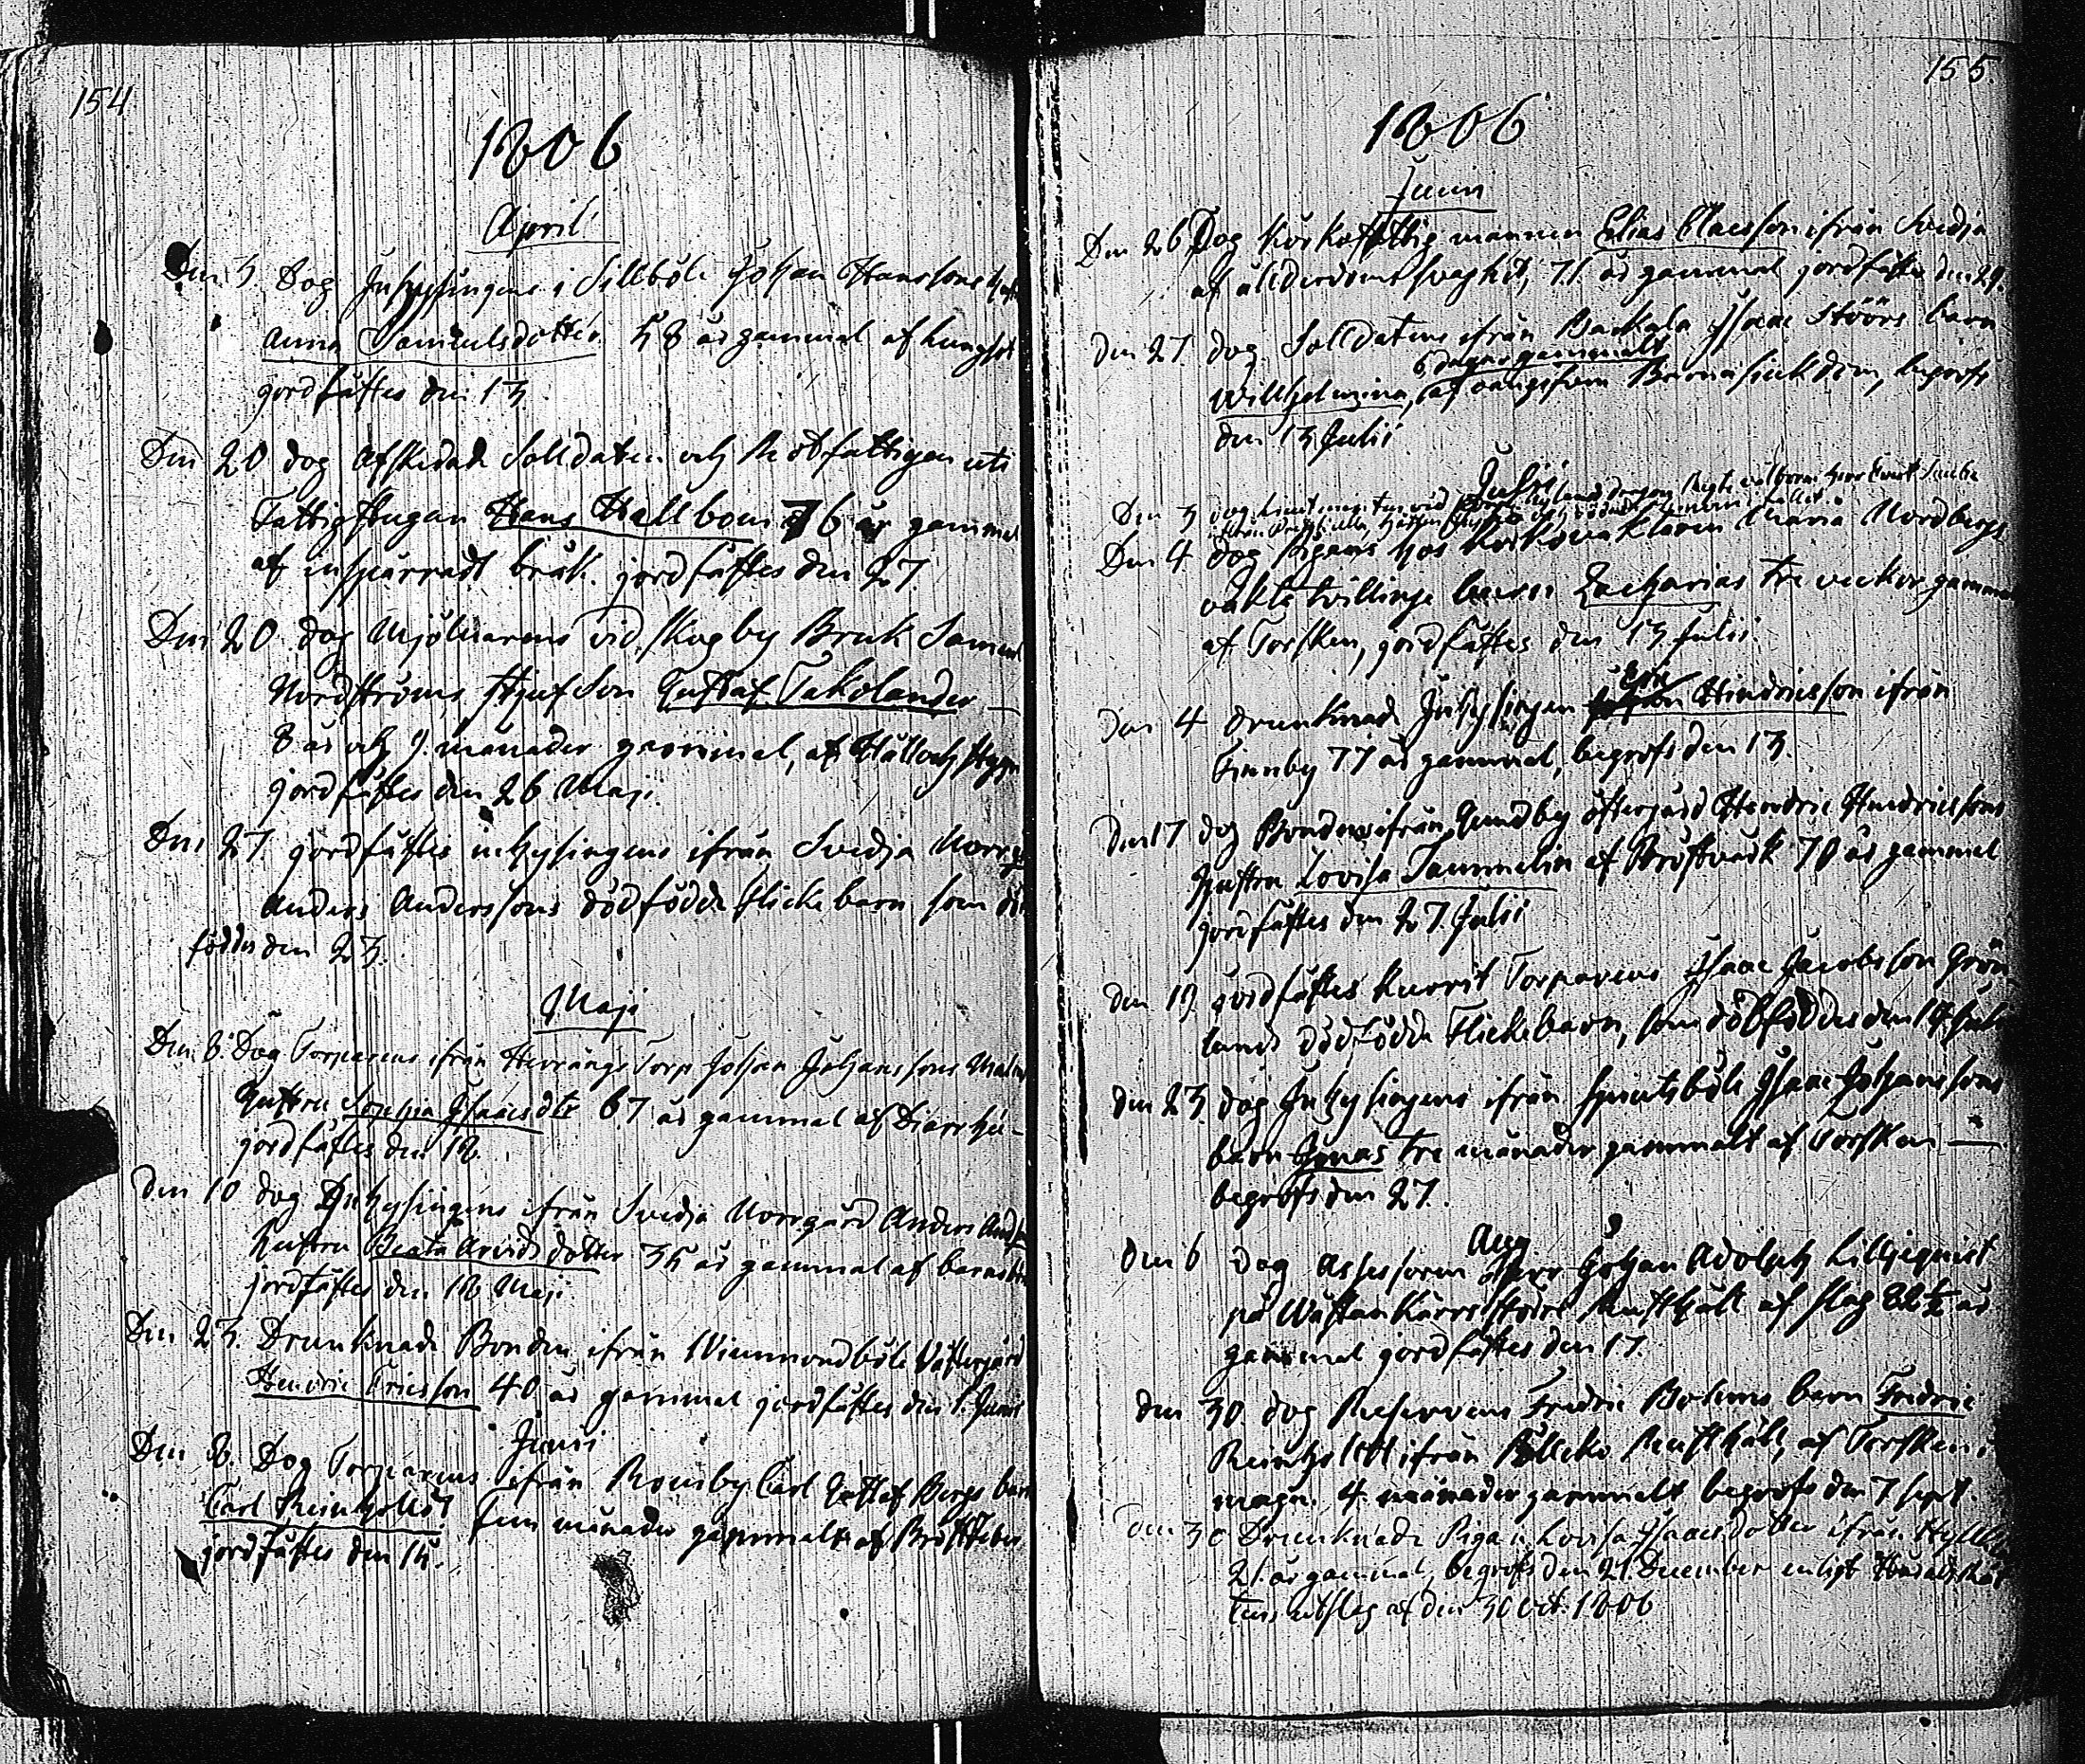 154
1806
April
Den 5 Dog Inhysingens i Sillböle Johan Hanssons hust
Anna Samuelsdotter 58 år gammal af hungsot
jordfästes den 13
Den 20 dog Afskedade Solldaten och Rotfattigen uti
Fattigstugan Hans Hallbom 76 år gammal
af inspärradt bråk. jordfästes den 27.
Den 20 dog Mjölnarens vid Skogby Bruk Samuel
Nordströms Stjufson Gustaf Takolander
8 år och 9 månader gammal, af Håll och Stygn
jordfästes den 26 Maji.
Den 27 jordfästes inhysingens ifrån Svedja Norrgå
Anders Anderssons dödfödda flickebarn som
föddes den 23.
Maji
Den 8 Dog Torparens ifrån Herrängs Torp Johan Johanssons
hustru Sophia Isaacsdtr 67 år gammal af Diarrhé
jordfästes den 18
den 10 dog Inhysingens ifrån Svedja Norrgård Anders Andss
hustru Beata Arvidsdotter 35 år gammal af
jordfästes den 18 Maji.
Den 23. Drunknade Bonden ifrån Wimmondböle Wästergård
Hendric Ericsson 40 år gammal jordfästes den 1. Junii
Junii
Den 8. Dog Torparens ifrån Ronsby Carl Gustaf Bergs barn
Carl Reinhold fem månader gammalt af Bröstfeber
jordfästes den 15.
155.
1806
Junii
Den 26 Dog Kyrkofattig mannen Elias Claesson ifrån Svedja
af ållderdoms svaghet, 71. år gammal jordfästes den 29.
den 27 dog Solldatens ifrån Backala Isaac Störs barn
6 dagar gammalt
Willhelmina, af Barnasjukdom, begrofs
den 13 Julii
Julii
Den 3 dog
Den 4 dog Pigans hos Maria Nordbergs
oäkta tvillinge barn Zacharias tre veckor gammal
af Torsken, jordfästes den 13 Julii.
Eric
den 4 drunknade Inhysingen Hindricsson ifrån
Finnby 77 år gammal, begrofs den 13.
Den 17 dog Bondens ifrån Gundby östergård Hendric Hindricssons
hustru Lovisa Tammelin af Bröstvärk 70 år gammal
jordfästes den 27 Julii
den 19 jordfästes Torparens Isaac Jacobsson Grön
lunds dödfödda Flickebarn, som dödföddes den 14 Juli
den 23 dog Inhysingens ifrån Spjutsböle Isaac Johanssons
barn Jonas tre månader gammalt af Torsken
begrofs den 27.
Aug
den 6 dog Assessorn Herr Johan Adolph Lilljeqvist
på Wästankärr Rusthåll af slag 82½ år
gammal jordfästes den 17.
den 30 dog Reservens Fredric Bohms barn Fredric
Reinhold ifrån Rusthåll, af Torsken i
magn. 4 månader gammalt begrofs den 7 Sept.
den 30 Drunknade Pigan Lovisa Isaacsdotter ifrån
21 år gammal, begrofs den 21 December enligt Häradsrät
tens utslag af den 30 Oct. 1806